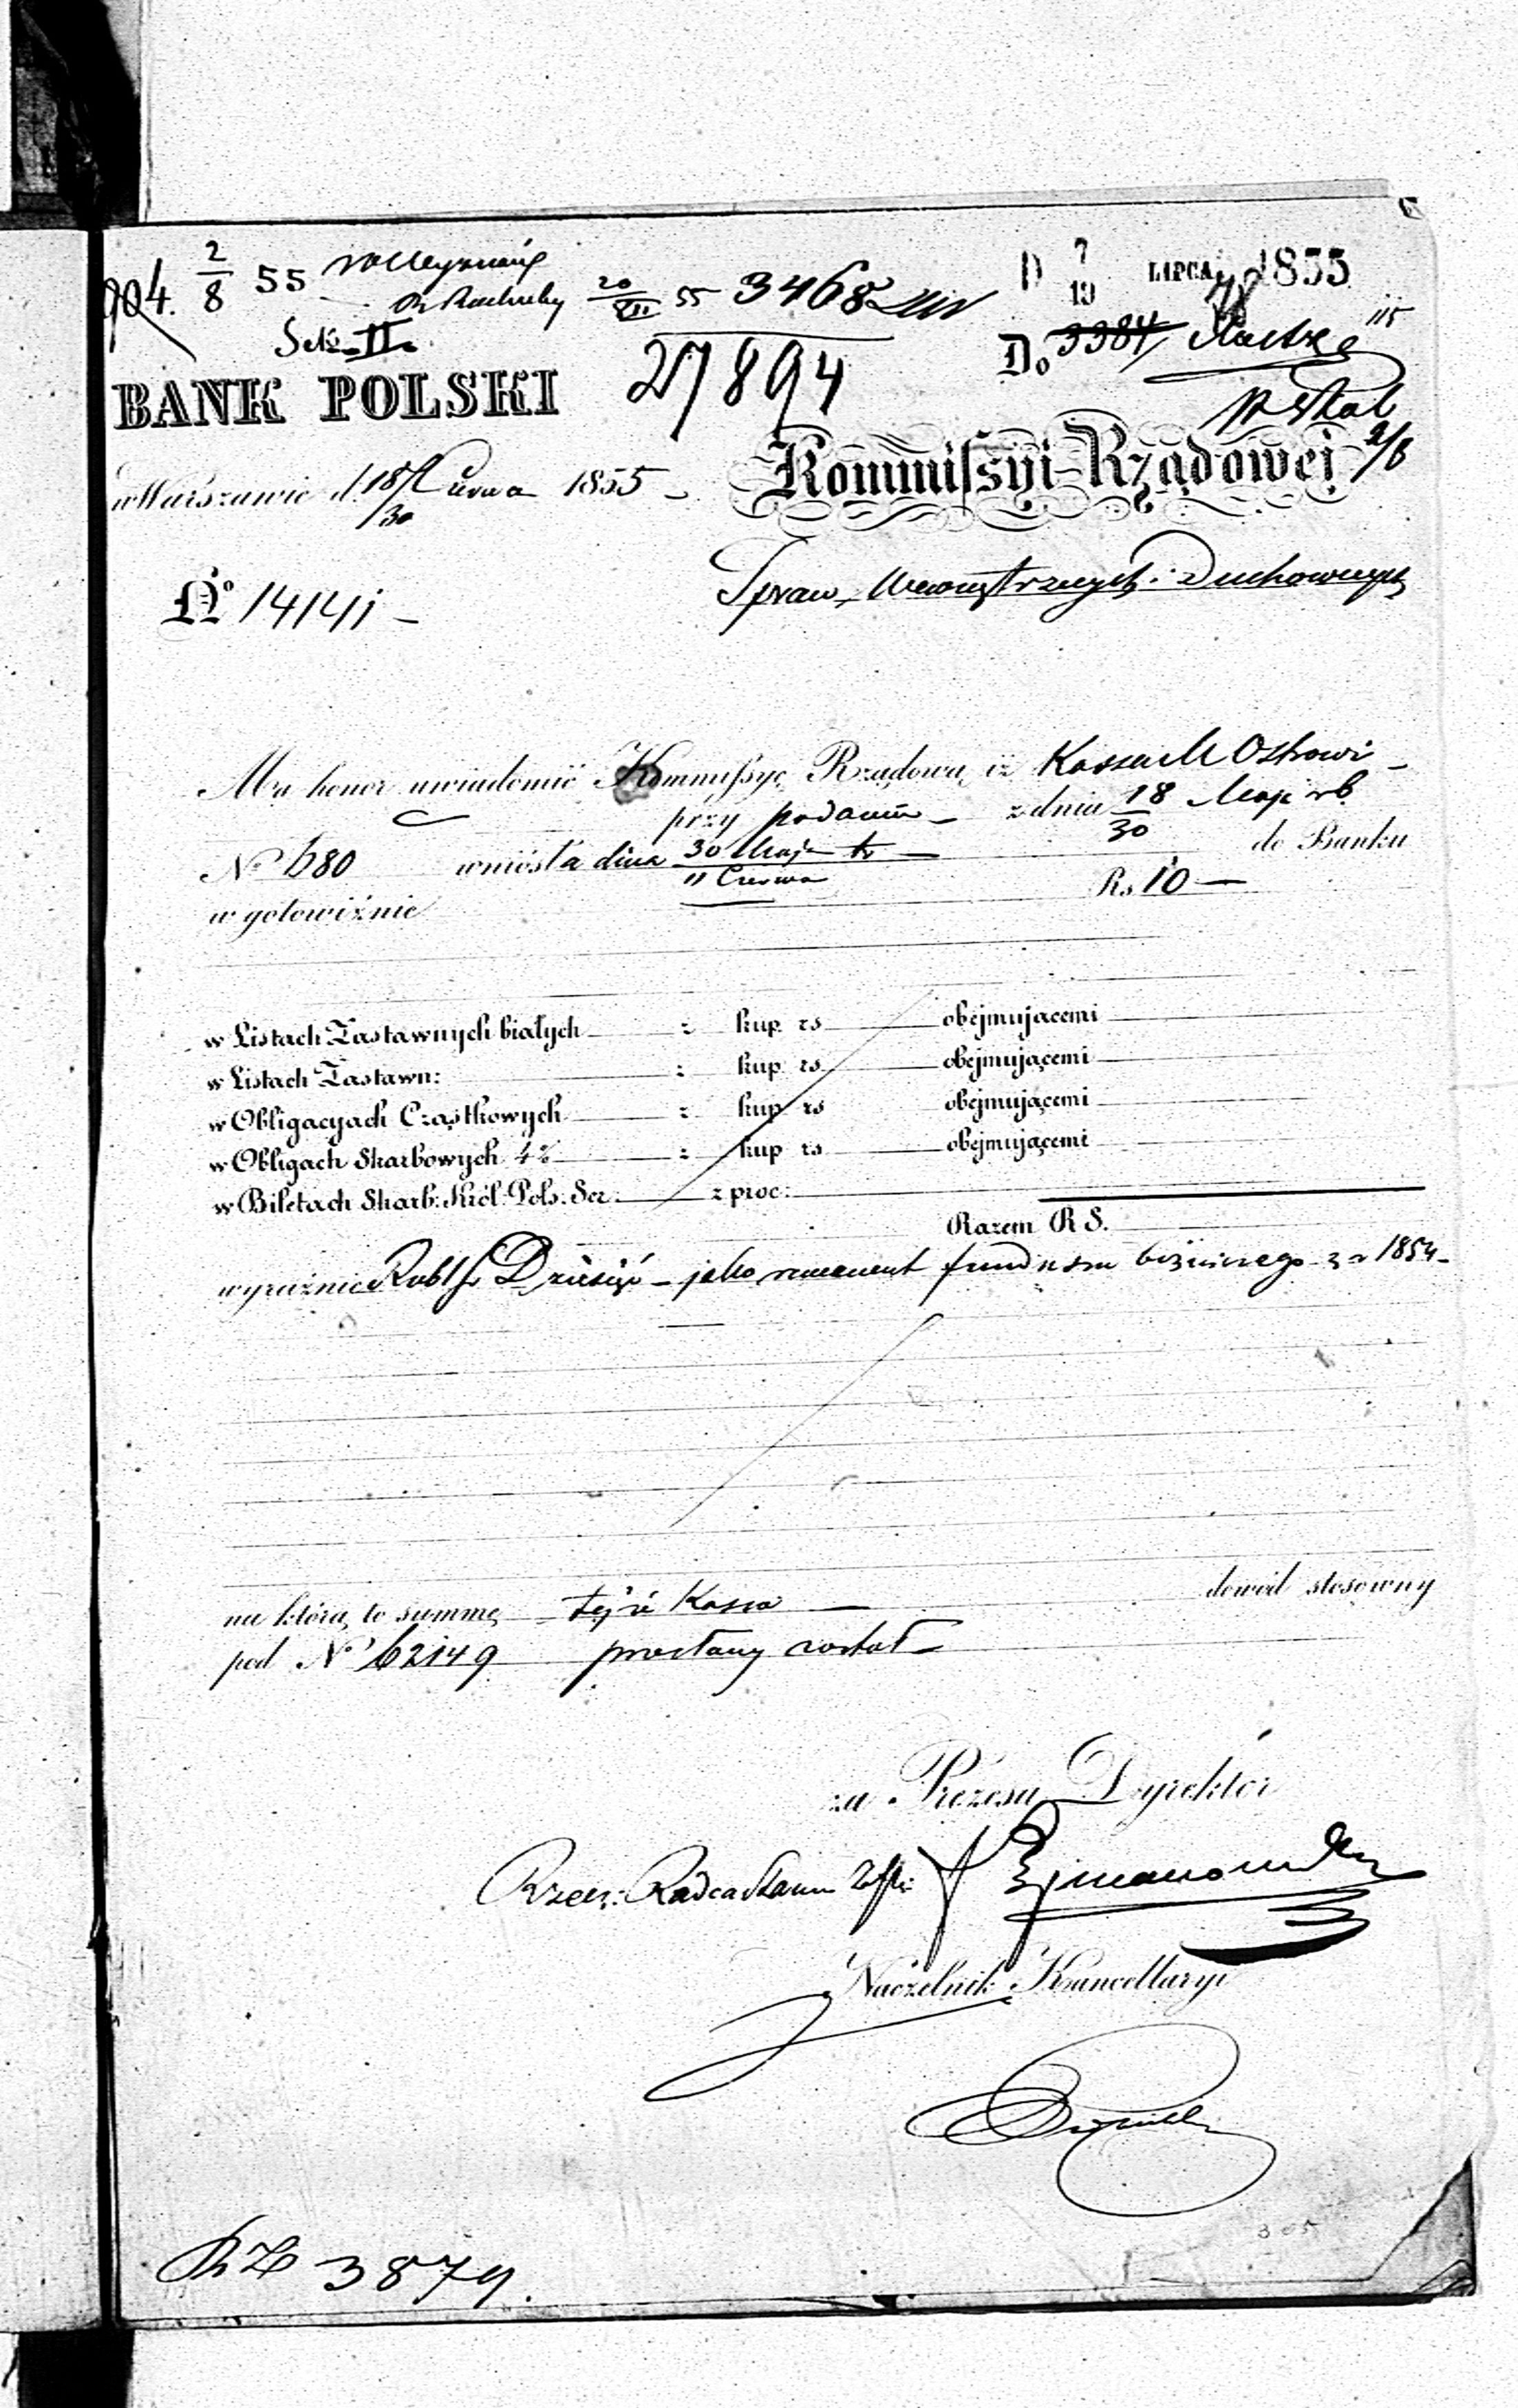 904. 2/8 55
Rachuby 20/VII 55 3468
Sek. II.
27894
D 7/19 LIPCA 1855
Do 3384
BANK POLSKI
w Warszawie d. 18/30 Czerwca 1855
Kommissyi Rządowej
Spraw Wewnętrznych i Duchownych
No 14141
Ma honor uwiadomić Kommissyę Rządową iż Kassa M Ostrowi
przy podaniu z dnia 18/30 Maja rb
No 680 wniosła dnia 30 Maja/11 Czerwca tr do Banku
w gotowiźnie Rs 10
w Listach Zastawnych białych z kup. rs obejmującemi
w Listach Zastawn: z kup. rs obejmującemi
w Obligacyach Cząstkowych z kup rs obejmującemi
w Obligach Skarbowych 4% z kup rs obejmującemi
w Biletach Skarb: Król: Pols: Ser: z proc:
Razem R S.
wyraźnie Rubli Sr Dziesięć jako remanent funduszu bóżniczego z r 1854
na którą to summę tejże Kassie dowód stosowny
pod No 62149 przesłany został
za Prezesa Dyrektor
Rzecz: Radca Stanu
Naczelnik Kancellaryi
305
3879.